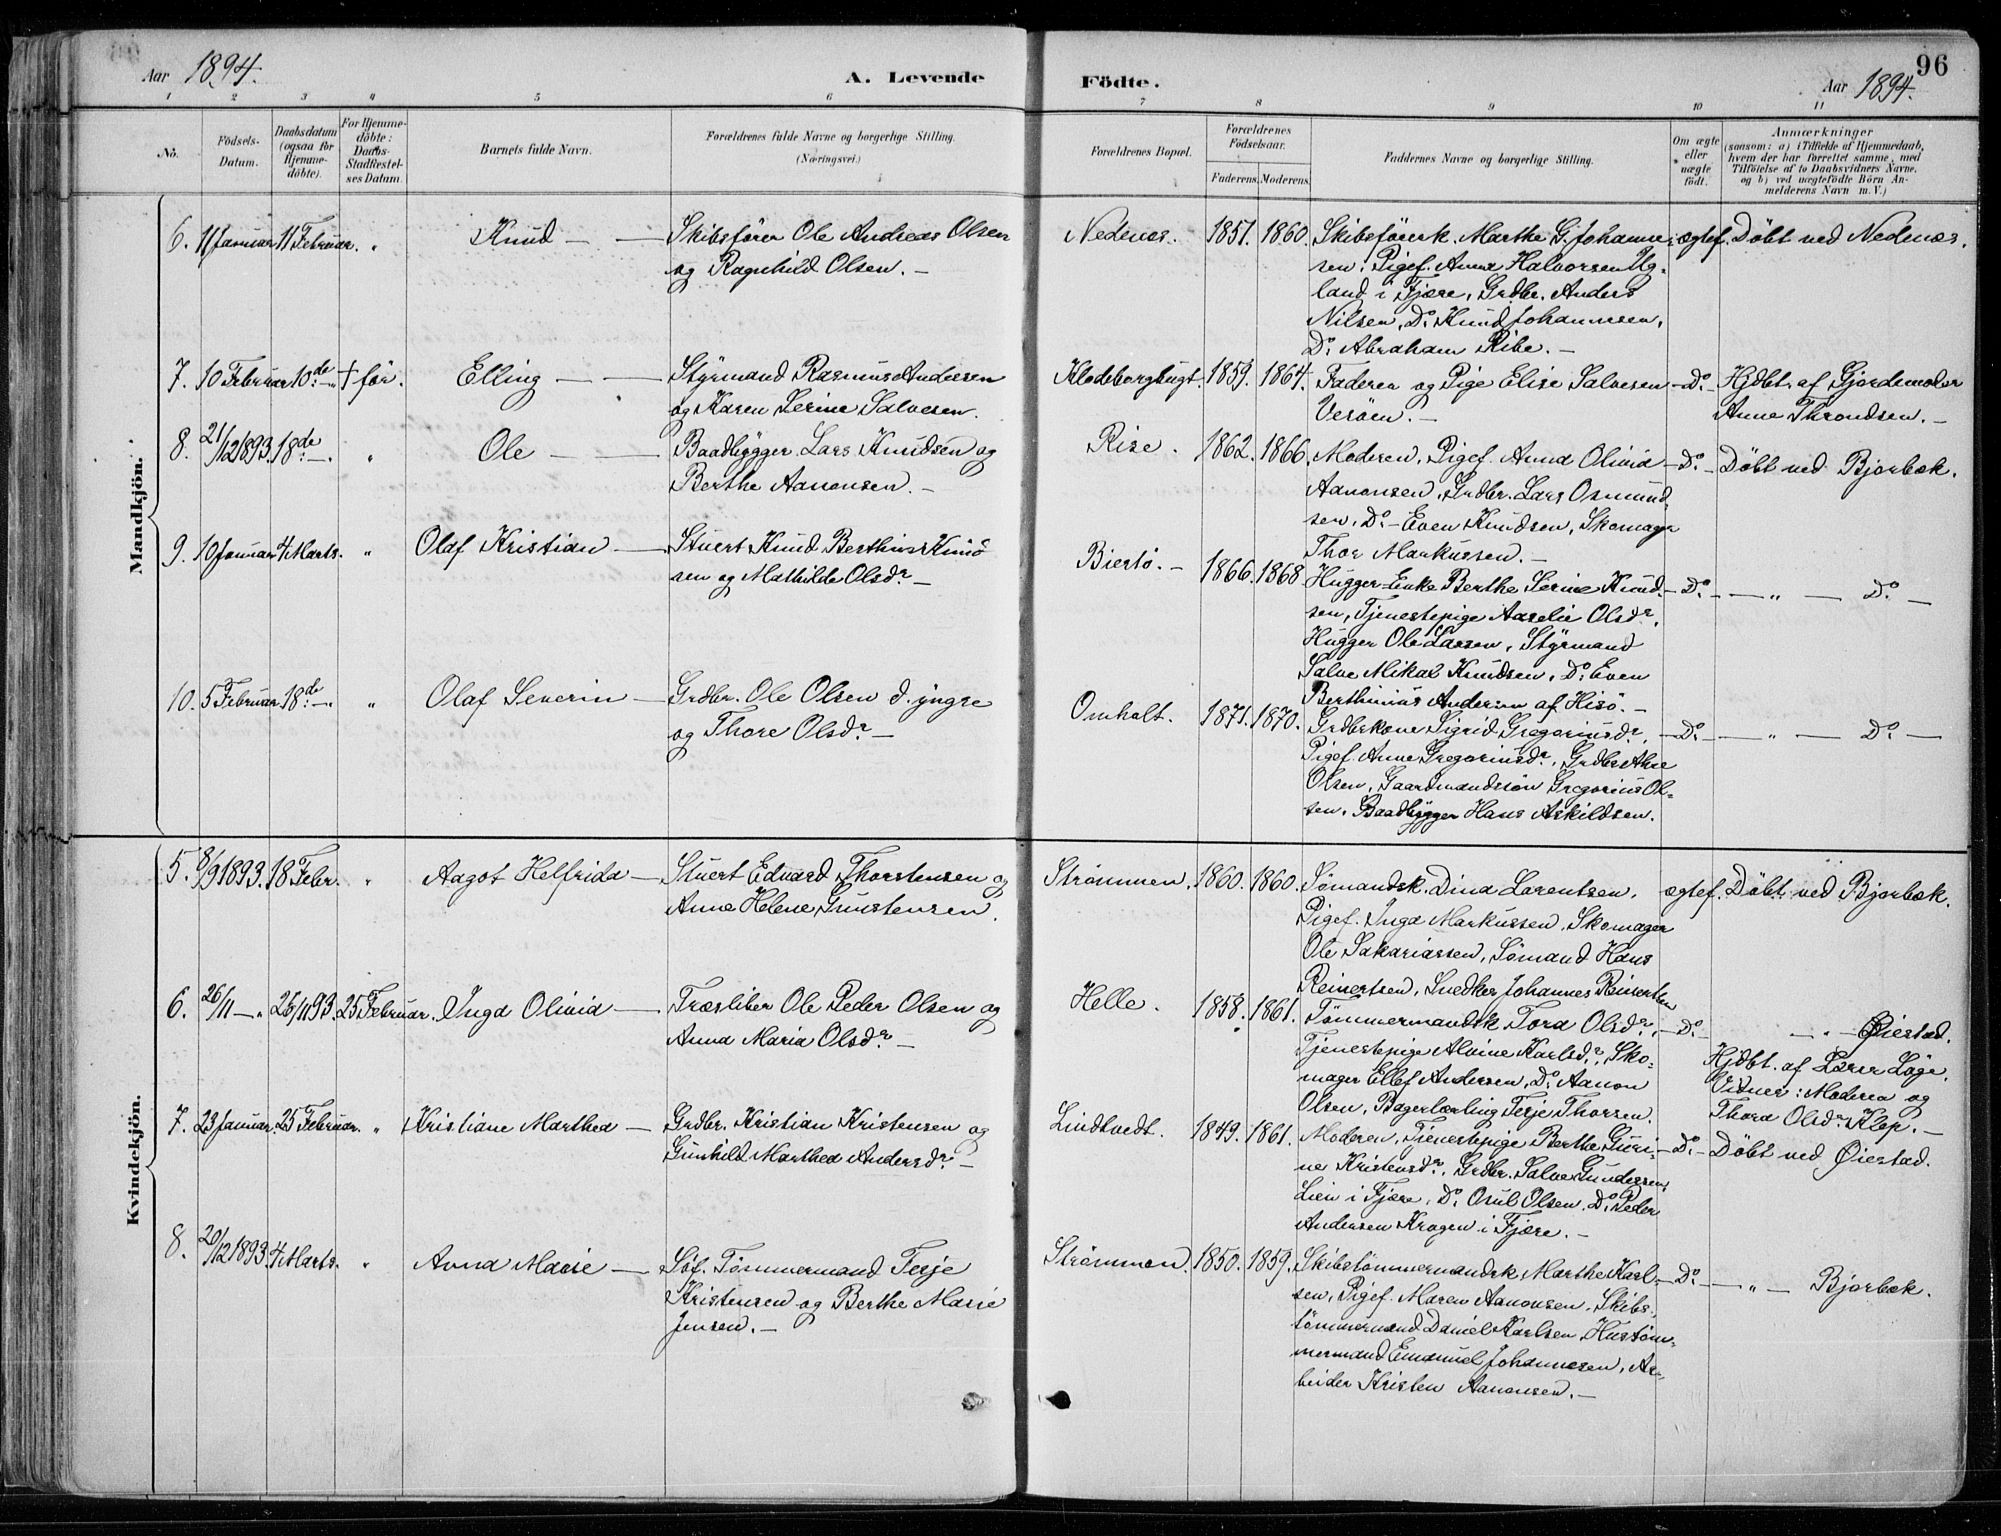 Aar 1894.
A. Levende
Födte.
Aar 1894.
96
1 2 3 4 5 6 7 8 9 10 11
No.
Födsels-
Datum.
Daabsdatum
(ogsaa for
Hjemme-
döbte).
For Hjemme-
döbte:
Daabs-
Stadfæstel-
ses Datum.
Barnets fulde Navn.
Forældrenes fulde Navne og borgerlige Stilling.
(Næringsvei.)
Forældrenes Bopæl.
Forældrenes
Födselsaar.
Faderens. Moderens.
Faddernes Navne og borgerlige Stilling.
Om ægte
eller
uægte
födt.
Anmærkninger
(saasom: a) i Tilfælde af Hjemmedaab,
hvem der har forrettet samme, med
Tilföielse af to Daabsvidners Navne,
og b) ved uægtefödte Börn An-
melderens Navn m. V.)
Mandkjön.
6. 11 Januar 11 Februar. " Knud — Skibsfører Ole Andreas Olsen
og Ragnhild Olsen. —
Nedenes. 1851. 1860. Skibsførerk. Marthe G. Johanne-
sen, Pigef. Anna Halvorsen Ug-
land i Fjære, Grdbr. Anders
Nilsen, Do Knud Johannesen,
Do Abraham Ribe. —
ægtef. Döbt ved Nedenæs.
7. 10 Februar 10de —" † før. Elling — Styrmand Rasmus Andersen
og Karen Serine Salvesen.
Klodeborgbugt. 1859. 1864. Faderen og Pige Elise Salvesen
Veröen. —
— Do — Hjdbt. af Gjordemoder
Anne Throndsen. —
8. 21/12 1893. 18de —. " Ole — Baadbygger Lars Knudsen og
Berthe Aanonsen. —
Rise. 1862. 1866. Moderen, Pigef. Anna Olivia
Aanonsen, Grdbr. Lars Osmund-
sen, Do — Even Knudsen, Skomager
Thor Markussen. —
— Do — Döbt ved Bjorbæk.
9. 10 Januar 4 Marts. " Olaf Kristian — Stuert Knud Berthius Knud-
sen og Mathilde Olsdr —
Biertö. — 1866. 1868 Hugger-Enke Berthe Serine Knud-
sen, Tjenestepige Aaselie Olsdr,
Hugger Ole Larsen, Styrmand
Salve Mikal Knudsen, Do Even
Berthinius Andersen af Hisö. —
— Do — " — Do —
10. 5 Februar 18de —" " Olaf Severin — Grdbr. Ole Olsen d. yngre
og Thore Olsdr —
Omholt. 1871. 1870. Grdbrkone Sigrid Gregoriusdr,
Pigef. Anne Gregoriusdr, Grdbr
Olsen, Gaardmandssøn Gregorius Ol-
sen, Baadbygger Hans Askildsen.
— Do — " — Do —
Kvindekjön.
5. 8/9 1893. 18 Febr. " Aagot Helfrida — Stuert Edvard Thorstensen og
Anne Helene Gunstensen.
Strømmen. 1860. 1860. Sømandsk. Dina Lorentsen,
Pigef. Inga Markussen, Skomager
Ole Sakariassen, Sømand Hans
Reinertsen, Snedker Johannes Reinertsen
ægtef. Döbt ved Bjorbæk.
6. 26/11 —" 26/11 93. 25 Februar. Inga Olivia — Træsliber Ole Peder Olsen og
Anna Maria Olsdr —
Helle. 1858. 1861. Tømmermandsk Tora Olsdr,
Tjenestepige Alvine Karlsdr, Sko-
mager Ellef Andersen, Do Aanon
Olsen, Bagerlærling Terje Thorsen.
— Do — " — Øiestad.
Hjdbt. af Lærer Löge.
Vidner: Moderen og
Thora Olsdr Klep. —
7. 23 Januar. 25 Februar. " Kristiane Marthea — Grdbr. Kristian Kristensen og
Gunhild Marthea Andersdr —
Lindtvedt. 1849. 1861. Moderen, Tjenestepige Berthe Guri-
ne Kristensdr, Grdbr. Salve Gundersen,
Lien i Fjære, Do Osul Olsen, Do Peder
Andersen Krogen i Fjære. —
— Do — Döbt ved Øiestad.
8. 20/12 1893. 4 Marts. " Anna Marie — Søf. Tømmermand Terje
Kristensen og Berthe Marie
Jensen. —
Strømmen. 1850. 1859. Skibstømmermandsk Marthe Karl-
sen, Pigef. Maren Aanonsen, Skibs-
tømmermand Daniel Karlsen, Hustøm-
mermand Emanuel Johannesen, Ar-
beider Kristen Aanonsen. —
— Do — " — Bjorbæk.